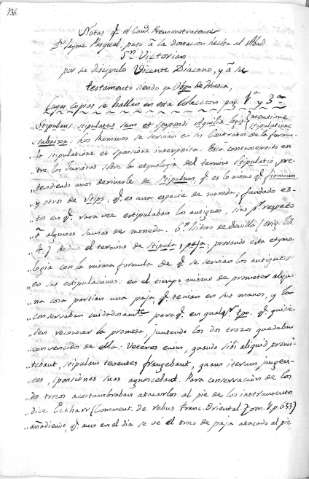 136
Notas q.e el Can.o Premonstratense
D.n Jayme Pasqual, puso à la donacion hecha al Mon.o
S.n Victorian
por su discipulo Vicente Diacono, y à su
testamento siendo ya Obpo de Huesca,
cuyas copias se hallan en esta Coleccion pag.
Stipulans stipulatus sum et spopondi Aquilia lege
subnexa. Los Romanos se servian en los Contratos de la formu-
la stipulatione et sponsione interposita.
los Juristas sobre la etymologia del termino stipulatio, pre-
tendiendo unos derivarle de Stipulum q.e es lo mismo q.e firmum
y otros de Stips, q.e es una especie de moneda, fundado es-
to en q.e rara vez estipulaban los antiguos, sin q.e respeto
à algunas sumas de moneda. S.n Isidro de Sevilla
deduce el termino de Stipula, paja, provando esta etymo-
logia con la misma formula de q.e se servian los antiguos
en sus estipulaciones. en el tiempo mismo de prometer algu-
na cosa partian una paja q.e tenian en sus manos, y la
conservaban cuidadosam.te para q.e en qualq.r q.e quisie-
sen reconocer la promesa, juntando los dos trozos quedaban
convencidos de ella. Veteres enim, quando sibi aliquid promi-
ttebant, stipulam tenentes frangebant, quam iterum jungen-
tes, sponsiones suas agnoscebant. Para conservacion de los
dos trozos acostumbraban atarlos al pie de los instrumentos
dice Eckhart (Comment. de rebus Franc. Oriental. Tom.
añadiendo q.e aun en el dia se ve el trozo de paja atacado al pie